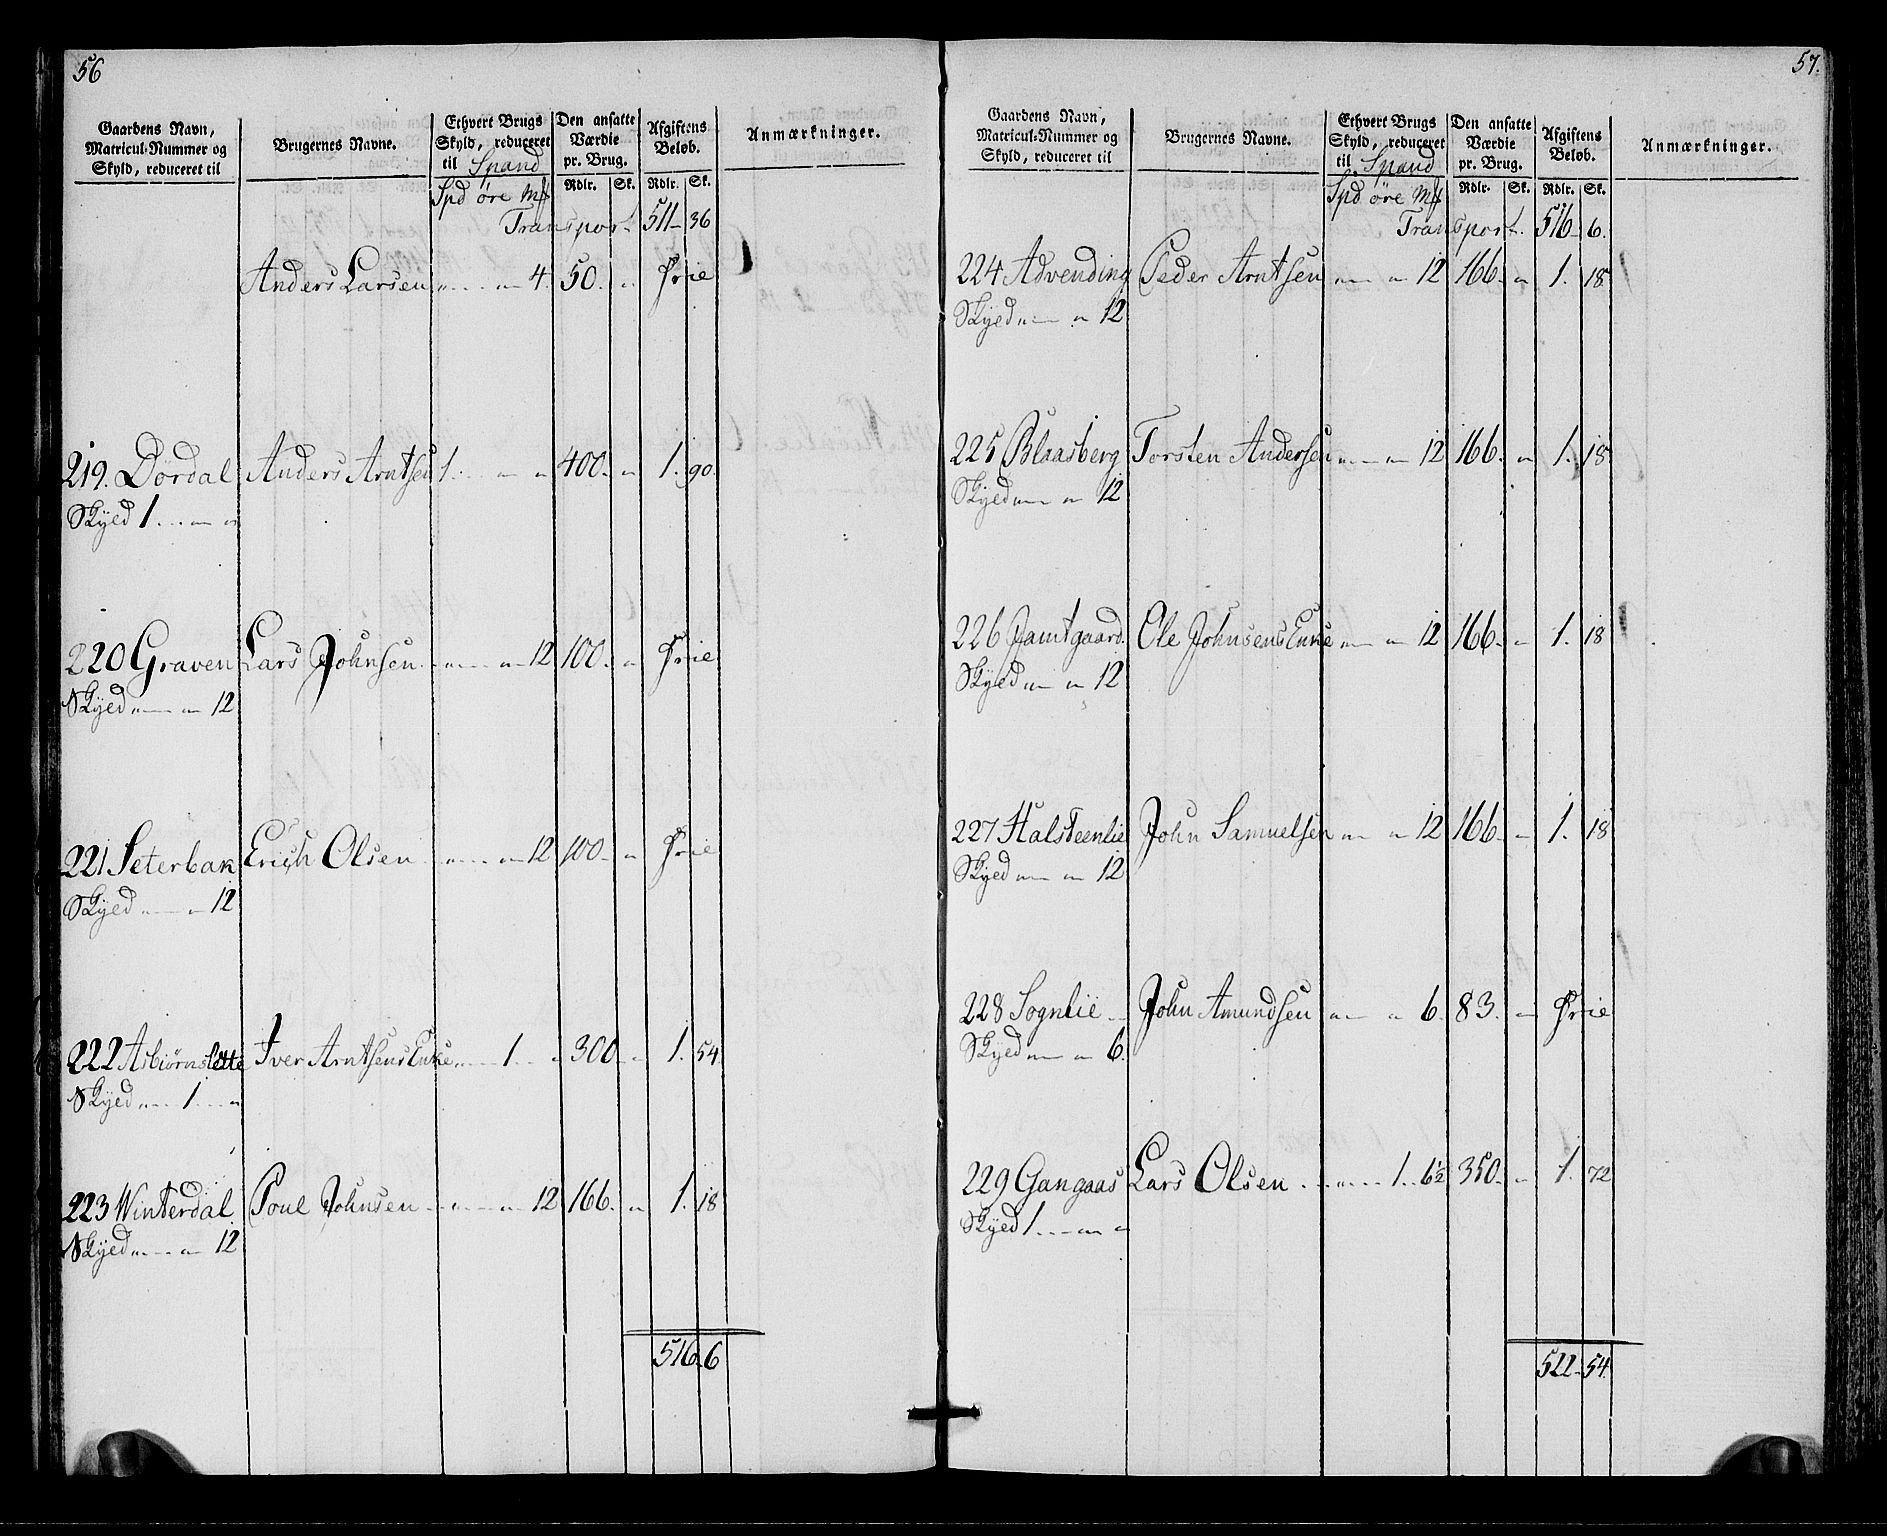 56
Gaardens Navn, Matricul-Nummer og Skyld, reduceret til
Brugernes Navne.
Ethvert Brugs Skyld, reduceret til Spand
Den ansatte Værdie pr. Brug.
Afgiftens Beløb.
Anmærkninger.
Spd øre Mk
Rdlr. Sk. Rdlr. Sk.
Transport 511 - 36
Anders Larsen " " 4. 50. " Frie
219. Dørdal Anders Arntsen 1. " " 400. " 1. 90.
Skyed 1. " "
220 Graven Lars Johnsen " " 12 100. " Frie
Skyed " " 12
221 Seterbak Erich Olsen " " 12 100. " Frie
Skyed " " 12
222 Asbiørnslette Iver Arntsens Enke " 1. " 300. " 1. 54.
Skyed " 1. "
223 Winterdal Poul Johnsen " " 12 166. " 1. 18
Skyed " " 12
516. 6
57.
Gaardens Navn, Matricul-Nummer og Skyld, reduceret til
Brugernes Navne.
Ethvert Brugs Skyld, reduceret til Spand
Den ansatte Værdie pr. Brug.
Afgiftens Beløb.
Anmærkninger.
Spd øre Mk
Rdlr. Sk. Rdlr. Sk.
Transport. 516 - 6.
224 Advending Peder Arntsen " " 12 166. " 1. 18
Skyed " " 12
225 Blaasberg Torsten Andersen " " 12 166. " 1. 18
Skyed " " 12
226 Jamtgaard. Ole Johnsens Enke " " 12 166. " 1. 18
Skyed " " 12
227 Halsteenlie John Samuelsen " " 12 166. " 1. 18
Skyed " " 12
228 Sognlie John Amundsen " " 6. 83. " Frie
Skyed " " 6.
229 Gangaas Lars Olsen " 1. 6½ 350. " 1. 72
Skyed 1. " "
522 - 54.